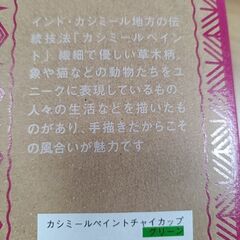 インド・カシミール地方の伝
統技法「カシミールペイン
ト」繊細で優しい草木柄、
象や猫などの動物たちをユ
ニークに表現しているもの、
人々の生活などを描いたも
のがあり、手描きだからこそ
の風合いが魅力です
カシミールペイントチャイカップ
グリーン